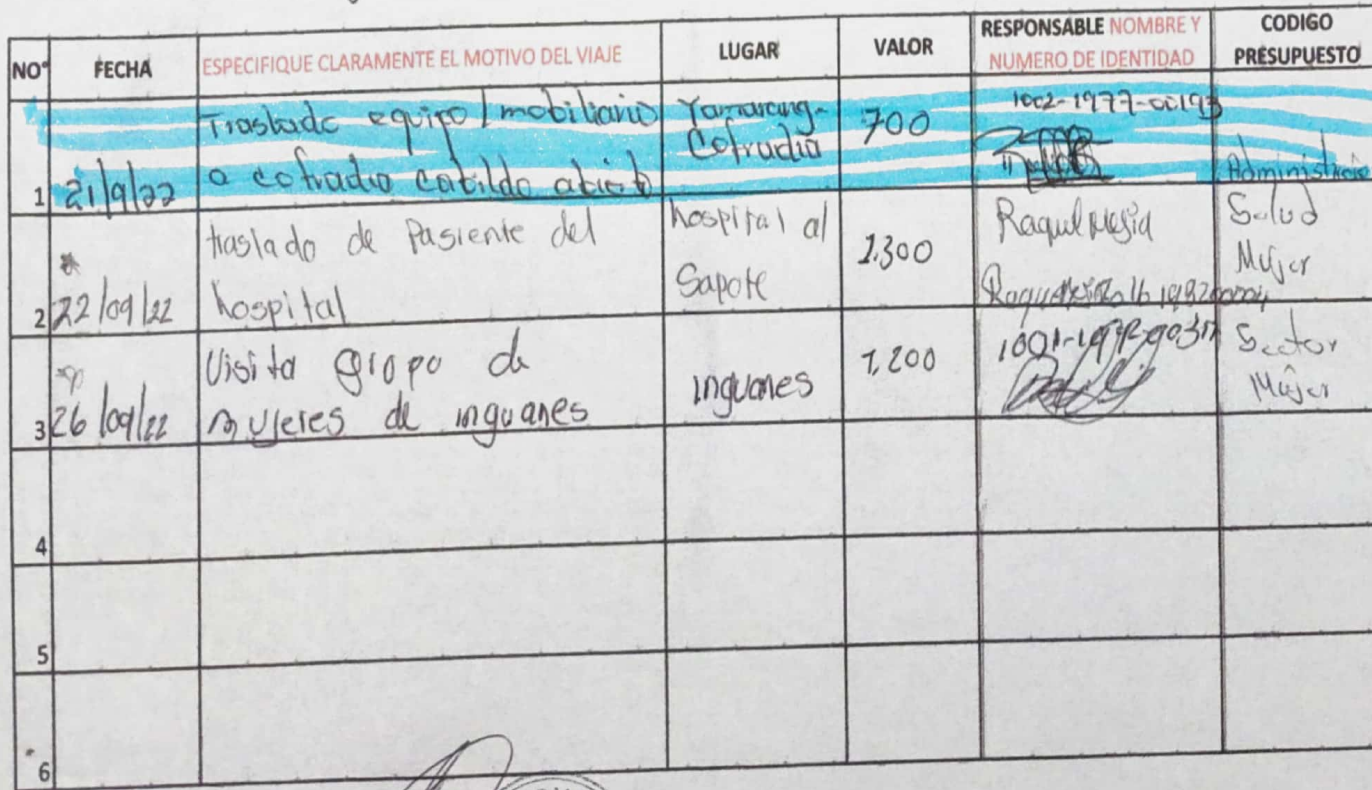 NO°
FECHA
ESPECIFIQUE CLARAMENTE EL MOTIVO DEL VIAJE
LUGAR
VALOR
RESPONSABLE NOMBRE Y
NUMERO DE IDENTIDAD
CODIGO
PRESUPUESTO
1
21/9/22
Traslado equipo/mobiliario
a cofradia cabildo abierto
Cofradia
700
1002-1977-00193
2
22/09/22
traslado de Pasiente del
hospital
hospital al
Sapote
1.300
Raquel Mejia
Salud
Mujer
3
26/09/22
Visita gropo de
mujeres de inguanes
inguanes
1,200
Sector
Mujer
4
5
6